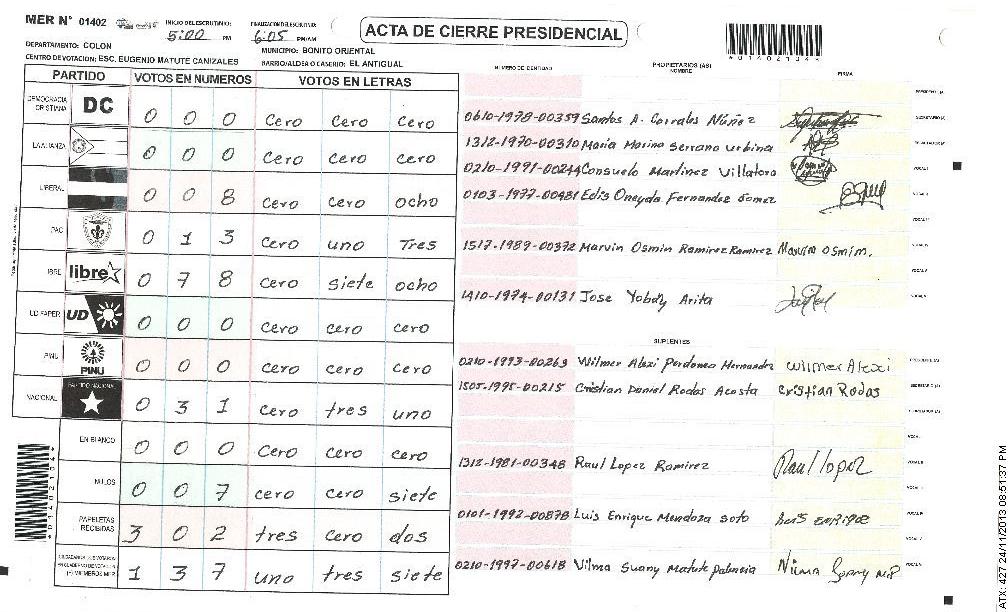 MER N° 01402
INICIO DEL ESCRUTINIO:
5:00 PM
FINALIZACION DEL ESCRUTINIO:
6:05 PM/AM
ACTA DE CIERRE PRESIDENCIAL
*01402104*
DEPARTAMENTO: COLON
MUNICIPIO: BONITO ORIENTAL
CENTRO DE VOTACION: ESC. EUGENIO MATUTE CANIZALES
BARRIO/ALDEA O CASERIO: EL ANTIGUAL
PARTIDO VOTOS EN NUMEROS VOTOS EN LETRAS
DEMOCRACIA CRISTIANA DC 0 0 0 cero cero cero
LA ALIANZA 0 0 0 cero cero cero
LIBERAL 0 0 8 cero cero ocho
PAC 0 1 3 cero uno Tres
LIBRE libre 0 7 8 cero siete ocho
UD FAPER UD 0 0 0 cero cero cero
PINU PINU 0 0 0 cero cero cero
NACIONAL PARTIDO NACIONAL 0 3 1 cero tres uno
EN BLANCO 0 0 0 cero cero cero
NULOS 0 0 7 cero cero siete
PAPELETAS RECIBIDAS 3 0 2 tres cero dos
CIUDADANOS QUE VOTARON EN CUADERNO DE VOTACION (+) MIEMBROS MER 1 3 7 uno tres siete
NUMERO DE IDENTIDAD PROPIETARIOS (AS) NOMBRE FIRMA
0610-1978-00359 Santos A. Corrales Núñez
1312-1970-00310 Maria Marina Serrano Urbina
0210-1991-00244 Consuelo Martinez Villatoro
0103-1977-00481 Edis Oneyda Fernandez Gomez
1517-1989-00372 Marvin Osmin Ramirez Ramirez Marvin Osmim.
1410-1974-00131 Jose Yobany Arita
SUPLENTES
0210-1993-00263 Wilmer Alexi Perdomo Hernandez Wilmer Alexi
1505-1995-00215 Cristian Daniel Rodas Acosta Cristian Rodas
1312-1981-00348 Raul Lopez Ramirez Raul lopez
0101-1992-00878 Luis Enrique Mendoza Soto Luis Enrique
0210-1997-00618 Vilma Suany Matute Palencia
*01402104*
ATX: 427 24/11/2013 08:51:37 PM